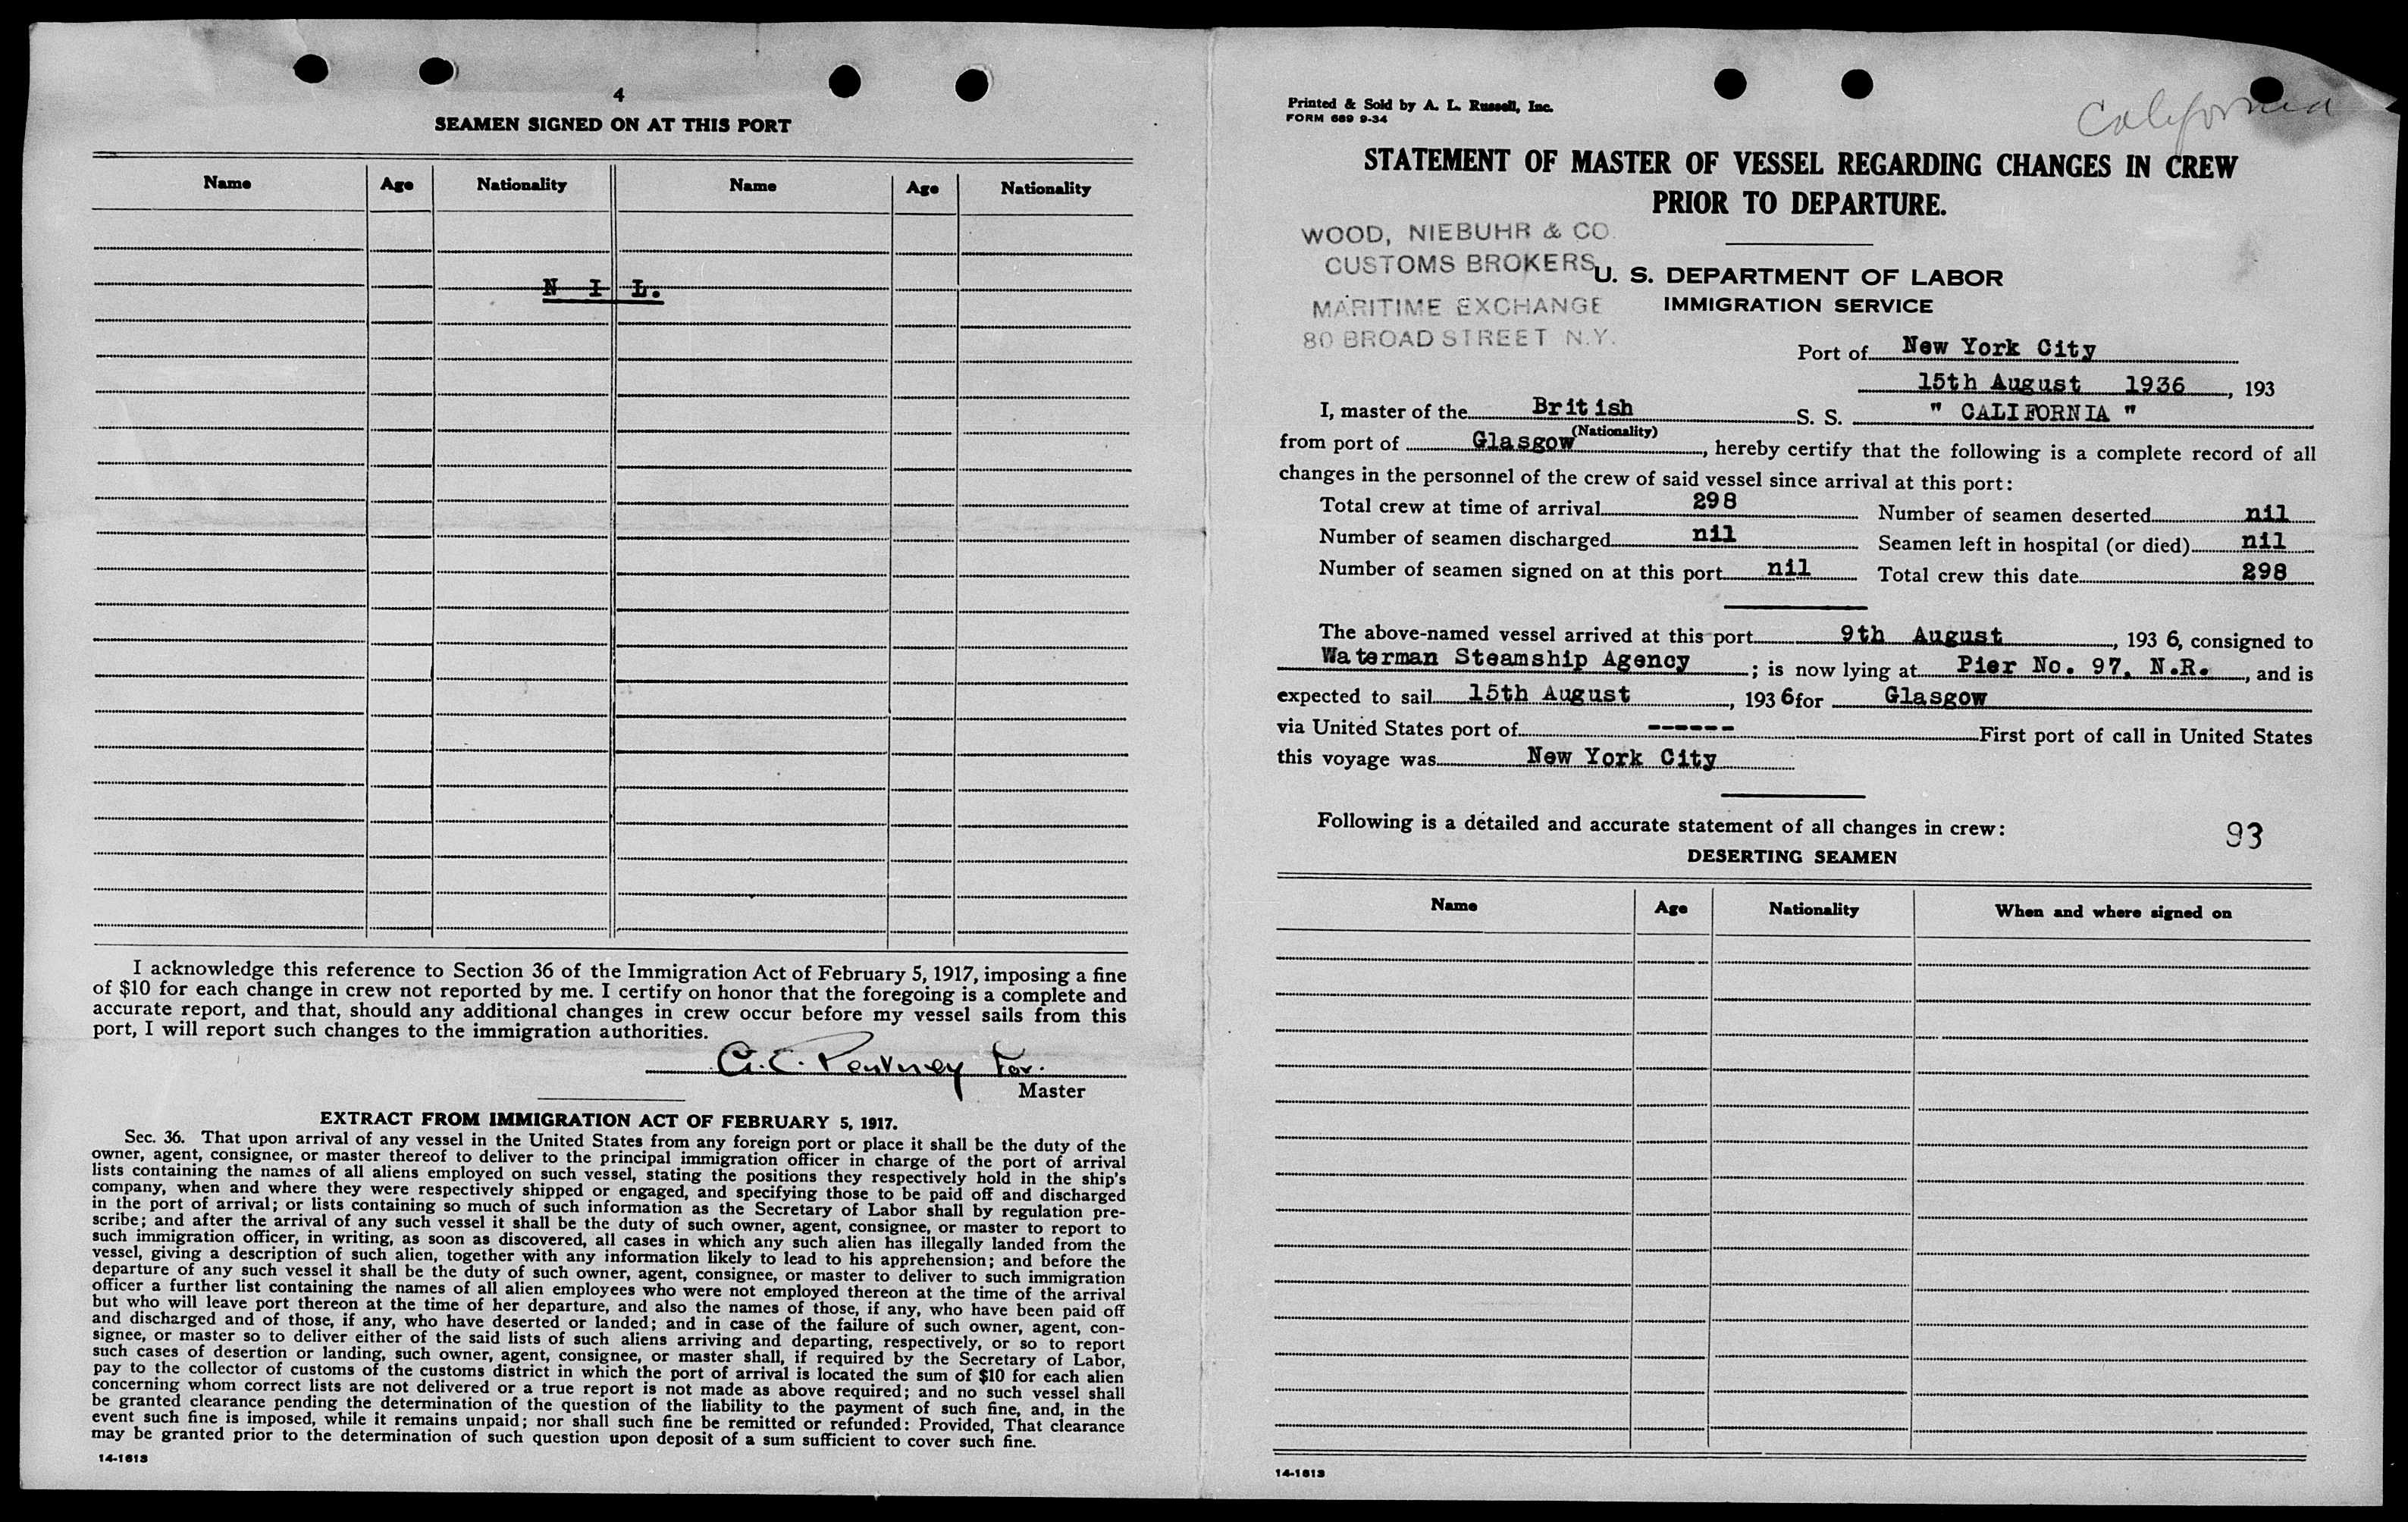 4
SEAMEN SIGNED ON AT THIS PORT
Name Age Nationality Name Age Nationality
N I L.
I acknowledge this reference to Section 36 of the Immigration Act of February 5, 1917, imposing a fine
of $10 for each change in crew not reported by me. I certify on honor that the foregoing is a complete and
accurate report, and that, should any additional changes in crew occur before my vessel sails from this
port, I will report such changes to the immigration authorities.
For.
Master
EXTRACT FROM IMMIGRATION ACT OF FEBRUARY 5, 1917.
Sec. 36. That upon arrival of any vessel in the United States from any foreign port or place it shall be the duty of the
owner, agent, consignee, or master thereof to deliver to the principal immigration officer in charge of the port of arrival
lists containing the names of all aliens employed on such vessel, stating the positions they respectively hold in the ship's
company, when and where they were respectively shipped or engaged, and specifying those to be paid off and discharged
in the port of arrival; or lists containing so much of such information as the Secretary of Labor shall by regulation pre-
scribe; and after the arrival of any such vessel it shall be the duty of such owner, agent, consignee, or master to report to
such immigration officer, in writing, as soon as discovered, all cases in which any such alien has illegally landed from the
vessel, giving a description of such alien, together with any information likely to lead to his apprehension; and before the
departure of any such vessel it shall be the duty of such owner, agent, consignee, or master to deliver to such immigration
officer a further list containing the names of all alien employees who were not employed thereon at the time of the arrival
but who will leave port thereon at the time of her departure, and also the names of those, if any, who have been paid off
and discharged and of those, if any, who have deserted or landed; and in case of the failure of such owner, agent, con-
signee, or master so to deliver either of the said lists of such aliens arriving and departing, respectively, or so to report
such cases of desertion or landing, such owner, agent, consignee, or master shall, if required by the Secretary of Labor,
pay to the collector of customs of the customs district in which the port of arrival is located the sum of $10 for each alien
concerning whom correct lists are not delivered or a true report is not made as above required; and no such vessel shall
be granted clearance pending the determination of the question of the liability to the payment of such fine, and, in the
event such fine is imposed, while it remains unpaid; nor shall such fine be remitted or refunded: Provided, That clearance
may be granted prior to the determination of such question upon deposit of a sum sufficient to cover such fine.
14-1613
Printed & Sold by A. L. Russell, Inc.
FORM 689 9-34
California
STATEMENT OF MASTER OF VESSEL REGARDING CHANGES IN CREW
PRIOR TO DEPARTURE.
WOOD, NIEBUHR & CO.
CUSTOMS BROKERS
MARITIME EXCHANGE
80 BROAD STREET N.Y.
U. S. DEPARTMENT OF LABOR
IMMIGRATION SERVICE
Port of New York City
15th August 1936, 193
I, master of the British S. S. " CALIFORNIA "
(Nationality)
from port of Glasgow, hereby certify that the following is a complete record of all
changes in the personnel of the crew of said vessel since arrival at this port:
Total crew at time of arrival 298 Number of seamen deserted nil
Number of seamen discharged nil Seamen left in hospital (or died) nil
Number of seamen signed on at this port nil Total crew this date 298
The above-named vessel arrived at this port 9th August, 193 6, consigned to
Waterman Steamship Agency; is now lying at Pier No. 97, N.R., and is
expected to sail 15th August, 193 6 for Glasgow
via United States port of ------ First port of call in United States
this voyage was New York City
Following is a detailed and accurate statement of all changes in crew:
93
DESERTING SEAMEN
Name Age Nationality When and where signed on
14-1613